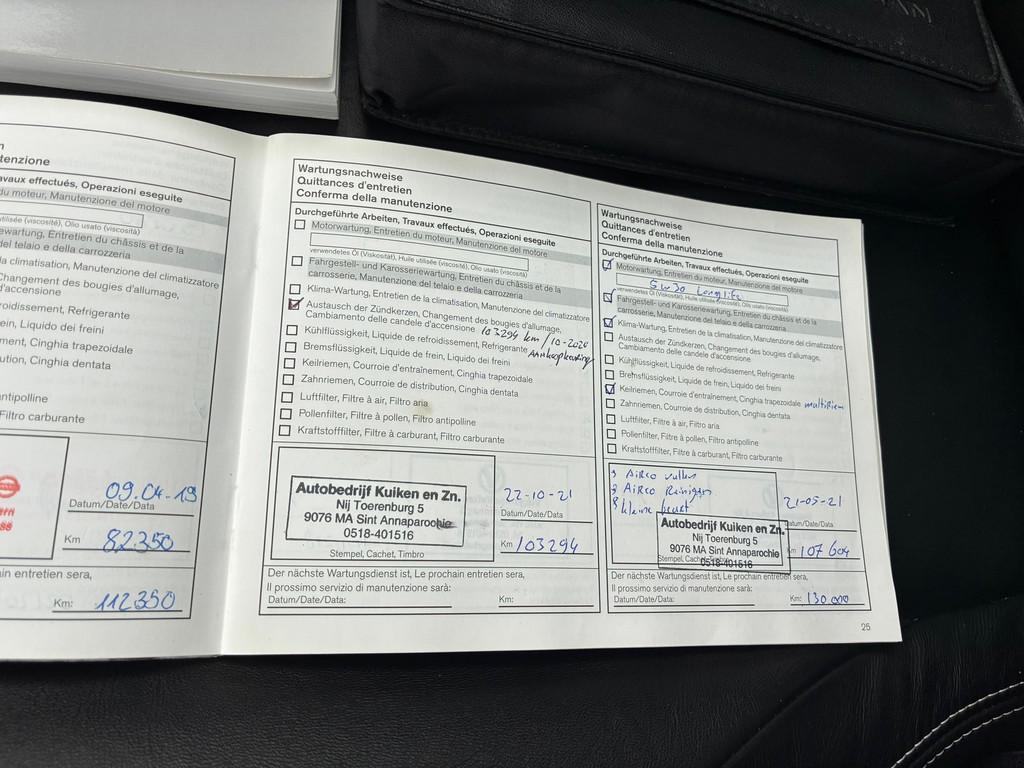 n
tenzione
avaux effectués, Operazioni eseguite
du moteur, Manutenzione del motore
utilisée (viscosité), Olio usato (viscosità)
ewartung, Entretien du châssis et de la
del telaio e della carrozzeria
la climatisation, Manutenzione del climatizzatore
Changement des bougies d'allumage,
d'accensione
roidissement, Refrigerante
ein, Liquido dei freini
ment, Cinghia trapezoidale
ution, Cinghia dentata
antipolline
Filtro carburante
09.04.19
Datum/Date/Data
Km 82350
ain entretien sera,
Km: 112350
Wartungsnachweise
Quittances d'entretien
Conferma della manutenzione
Durchgeführte Arbeiten, Travaux effectués, Operazioni eseguite
Motorwartung, Entretien du moteur, Manutenzione del motore
verwendetes Öl (Viskosität), Huile utilisée (viscosité), Olio usato (viscosità)
Fahrgestell- und Karosseriewartung, Entretien du châssis et de la
carrosserie, Manutenzione del telaio e della carrozzeria
Klima-Wartung, Entretien de la climatisation, Manutenzione del climatizzatore
Austausch der Zündkerzen, Changement des bougies d'allumage,
Cambiamento delle candele d'accensione 103294 km/10-2020
Kühlflüssigkeit, Liquide de refroidissement, Refrigerante
Bremsflüssigkeit, Liquide de frein, Liquido dei freini
Keilriemen, Courroie d'entraînement, Cinghia trapezoidale
Zahnriemen, Courroie de distribution, Cinghia dentata
Luftfilter, Filtre à air, Filtro aria
Pollenfilter, Filtre à pollen, Filtro antipolline
Kraftstofffilter, Filtre à carburant, Filtro carburante
Autobedrijf Kuiken en Zn.
Nij Toerenburg 5
9076 MA Sint Annaparochie
0518-401516
Stempel, Cachet, Timbro
22-10-21
Datum/Date/Data
Km 103294
Der nächste Wartungsdienst ist, Le prochain entretien sera,
Il prossimo servizio di manutenzione sarà:
Datum/Date/Data: Km:
Wartungsnachweise
Quittances d'entretien
Conferma della manutenzione
Durchgeführte Arbeiten, Travaux effectués, Operazioni eseguite
Motorwartung, Entretien du moteur, Manutenzione del motore
5W30 Longlife
verwendetes Öl (Viskosität), Huile utilisée (viscosité), Olio usato (viscosità)
Fahrgestell- und Karosseriewartung, Entretien du châssis et de la
carrosserie, Manutenzione del telaio e della carrozzeria
Klima-Wartung, Entretien de la climatisation, Manutenzione del climatizzatore
Austausch der Zündkerzen, Changement des bougies d'allumage,
Cambiamento delle candele d'accensione
Kühlflüssigkeit, Liquide de refroidissement, Refrigerante
Bremsflüssigkeit, Liquide de frein, Liquido dei freini
Keilriemen, Courroie d'entraînement, Cinghia trapezoidale multiRiem
Zahnriemen, Courroie de distribution, Cinghia dentata
Luftfilter, Filtre à air, Filtro aria
Pollenfilter, Filtre à pollen, Filtro antipolline
Kraftstofffilter, Filtre à carburant, Filtro carburante
AiRco vullen
AiRco Reinigen
kleine beurt
21-05-21
Datum/Date/Data
Autobedrijf Kuiken en Zn.
Nij Toerenburg 5
9076 MA Sint Annaparochie
0518-401516
Stempel, Cachet, Timbro
Km 107604
Der nächste Wartungsdienst ist, Le prochain entretien sera,
Il prossimo servizio di manutenzione sarà:
Datum/Date/Data: Km: 130 000
25